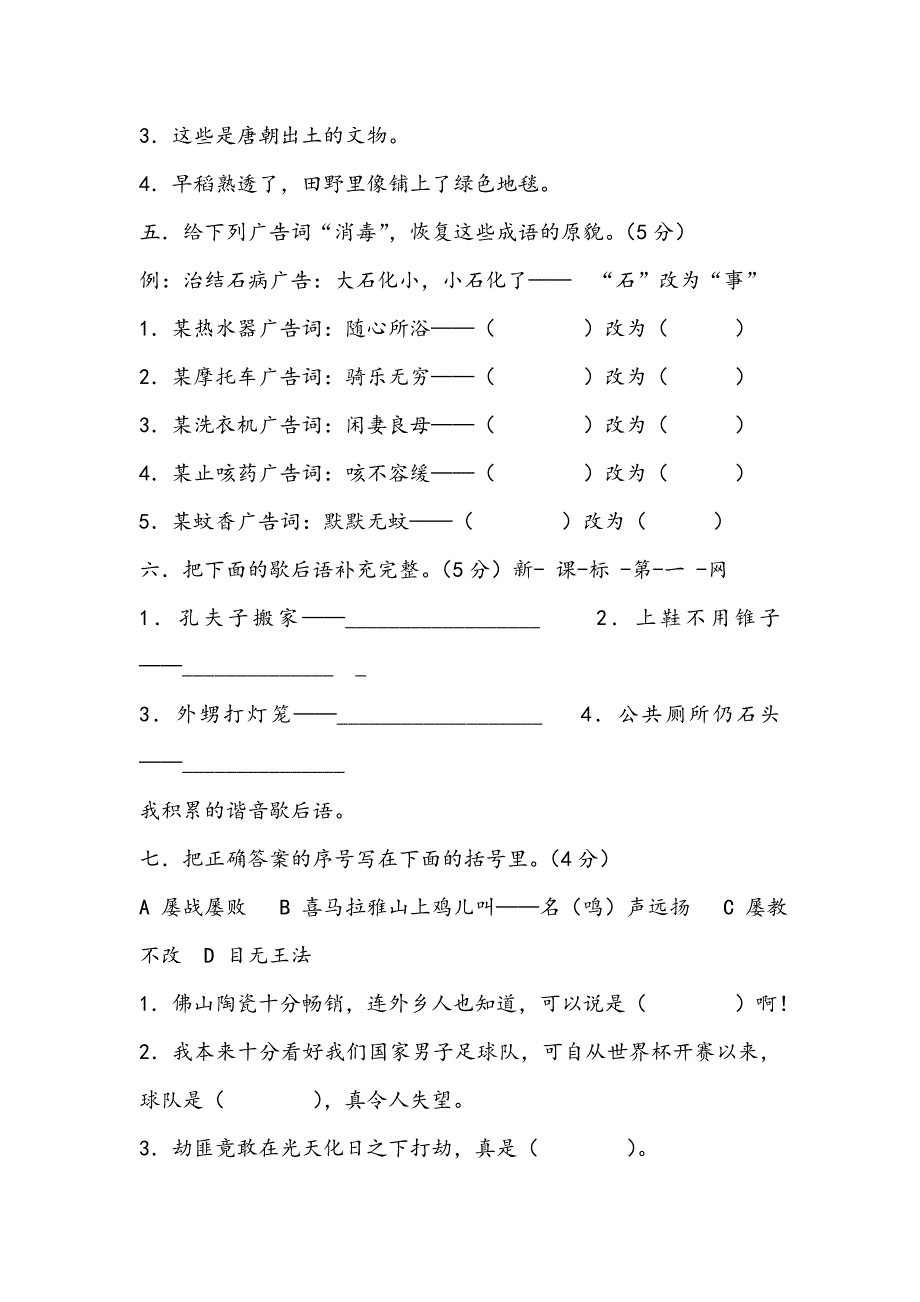 3．这些是唐朝出土的文物。
4．早稻熟透了，田野里像铺上了绿色地毯。
五．给下列广告词“消毒”，恢复这些成语的原貌。（5分）
例：治结石病广告：大石化小，小石化了—— “石”改为“事”
1．某热水器广告词：随心所浴——（ ）改为（ ）
2．某摩托车广告词：骑乐无穷——（ ）改为（ ）
3．某洗衣机广告词：闲妻良母——（ ）改为（ ）
4．某止咳药广告词：咳不容缓——（ ）改为（ ）
5．某蚊香广告词：默默无蚊——（ ）改为（ ）
六．把下面的歇后语补充完整。（5分）新- 课-标 -第-一 -网
1．孔夫子搬家——__________________ 2．上鞋不用锥子
——______________ _
3．外甥打灯笼——___________________ 4．公共厕所仍石头
——_______________
我积累的谐音歇后语。
七．把正确答案的序号写在下面的括号里。（4分）
A 屡战屡败 B 喜马拉雅山上鸡儿叫——名（鸣）声远扬 C 屡教
不改 D 目无王法
1．佛山陶瓷十分畅销，连外乡人也知道，可以说是（ ）啊！
2．我本来十分看好我们国家男子足球队，可自从世界杯开赛以来，
球队是（ ），真令人失望。
3．劫匪竟敢在光天化日之下打劫，真是（ ）。